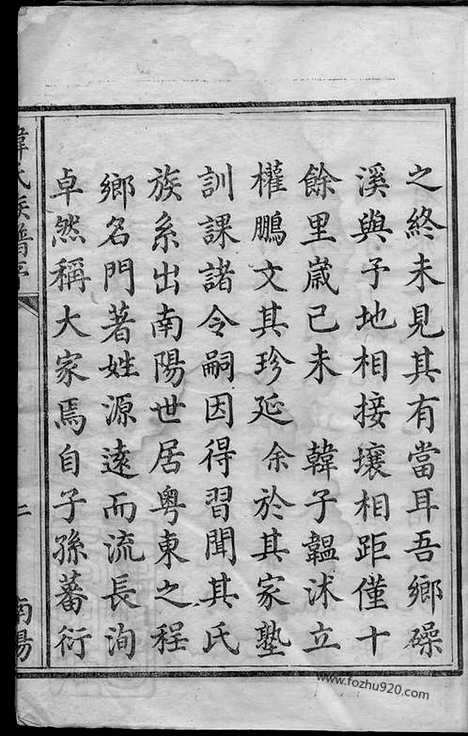 之終未見其有當耳吾鄉礤
溪與予地相接壤相距僅十
餘里嵗己未 韓子韞沭立
權鵬文其珍延余於其家塾
訓課諸令嗣因得習聞其氏
族系出南陽世居粤東之程
鄉名門著姓源遠而流長洵
卓然稱大家焉自子孫蕃衍
韓氏族譜序
二
南陽
www.fozhu920.com